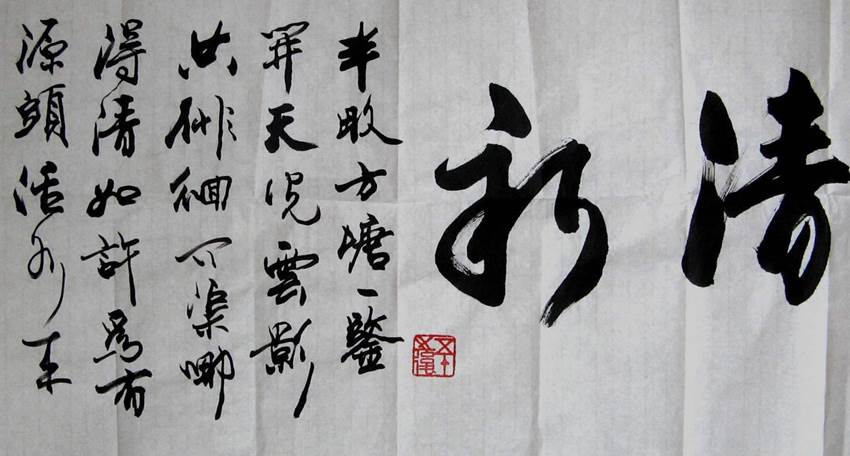 清新
半畝方塘一鑒
開天光雲影
共徘徊問渠哪
得清如許為有
源頭活水來